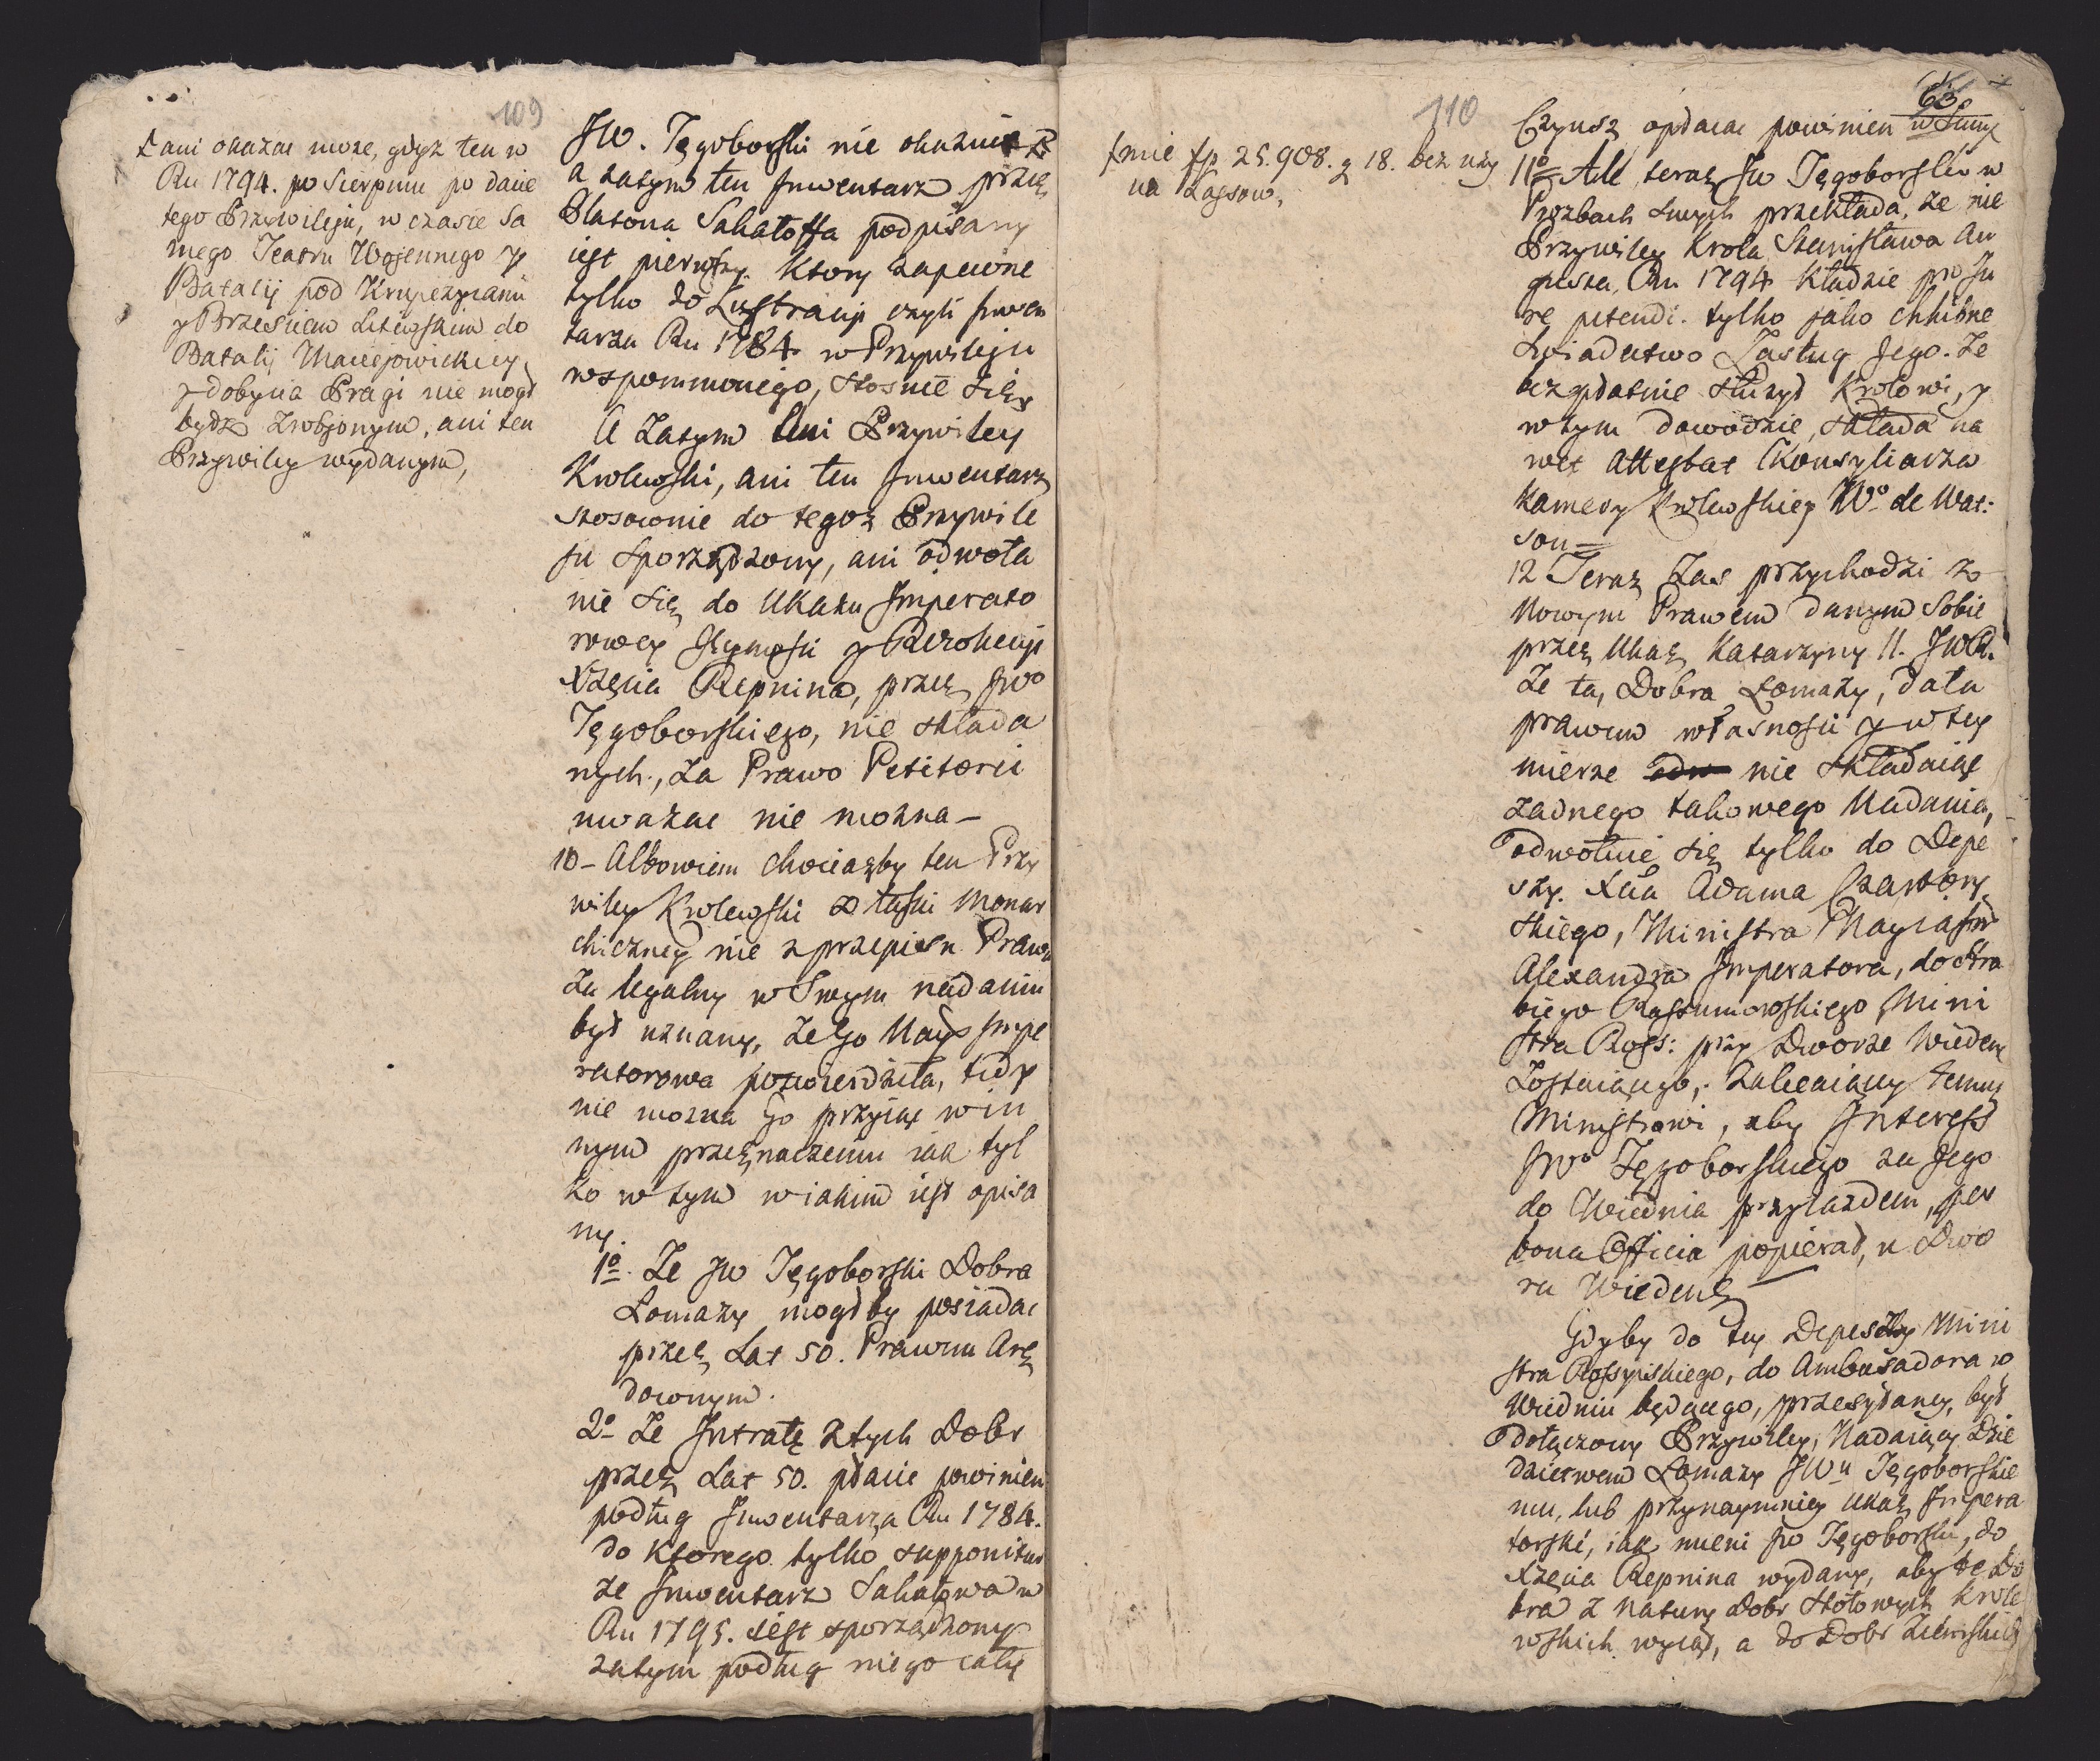 109
Ł ani okazac może, gdyz ten w
Ru 1794. po Sierpniu po dacie
tego Przywileju, w czasie Sa
mego Teatru Wojennego y
Batalij pod Krupczycami
y Brzesciem Litewskim do
Batalij Maciejowickiey
y dobycia Pragi nie mogł
bydz zrobjonym, ani ten
Przywiley wydanym,
JW. Tęgoborski nie okazuie
a zatym ten Inwentarz przez
Platona Sakatoffa podpisany
iest pierwszy. Ktory zapewne
tylko do Lustracji czyli Inwen
tarza Ru 1784 w Przywileju
wspomnionego, stosuie się
A Zatym Ani Przywiley
Krolewski, ani ten Inwentarz
stosownie do tegoz Przywile
ju sporządzony, ani odwoła
nie się do Ukazu Imperato
rowey Jeymosci y Rezolucji
Xżęcia Repnina, przez JWo
Tęgoborskiego, nie składa
nych, za Prawo Petitorii
uwazac nie mozna –
10 – Albowiem chociazby ten Przy
wiley Krolewski z łaski Monar
chiczney nie z przepisu Prawa
za legalny w Swym nadaniu
był uznany, ze Go Nayo Impe
ratorowa potwierdziła, tedy
nie mozna Go przyiąc w in
nym przeznaczeniu iak tyl
ko w tym w iakim iest opisa
ny.
1o Ze JW Tęgoborski Dobra
Łomazy mogł by posiadac
przez Lat 50. Prawem Arę
downym.
2o Ze Intratę z tych Dobr
przez Lat 50. płacic powinien
podług Inwentarza Ru 1784.
do ktorego tylko supponitur
ze Inwentarz Sakatowa w
Ru 1795. iest sporządzony
zatym podług niego cały
110
63
Summie fp 25.908. g 18. bez
na Lassow,
Czynsz opłacac powinien w Sumę
11o All teraz JW Tęgoborski w
Prozbach swych przekłada, ze nie
Przywiley Krola Stanisława Au
gusta, Ru 1794 kładzie pro Ju
re petendi. tylko jako chlubne
swiadectwo Zasług Jego. Ze
bezpłatnie słuzył Krolowi, y
w tym dowodzie, składa na
wet Attestat Konsyliarza
Kamery Krolewskiey Wo de Wat:
son =
12 Teraz Zas przychodzi z
Nowym Prawem danym Sobie
przez Ukaz Katarzyny II. JWR.
Ze ta, Dobra Łomazy, data
prawem własnosci y w tey
mierze nie składaiąc
zadnego takowego Nadania,
odwołuie się tylko do Depe
szy. Xcia Adama Czartory
skiego, Ministra Nayiasn
Alexandra Imperatora, do Hra
biego Rassumowskiego Mini
stra Ross: przy Dworze Wieden
Zostaiącego, zalecaiący temuz
Ministrowi, aby Interess
JWo Tęgoborskiego za Jego
do Wiednia przyiazdem, per
bona Officia popierał, u Dwo
ru Wieden
Gdyby do tey Depeszy Mini
stra Rossyiskiego, do Ambasadora w
Wiedniu będącego, przesyłaney, był
dołączony Przywiley, Nadaiący Dzie
dzictwem Łomazy JWu Tęgoborskie
mu, lub przynaymniey Ukaz Impera
torski, iak mieni JW Tęgoborski, do
Xżęcia Repnina wydany, aby te Do
bra z Natury dobr Stołowych Krole
wskich wyiął, a do Dobr Ziemskich